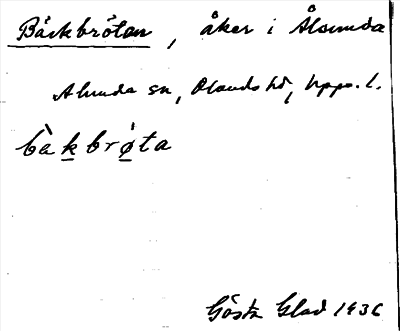 Bäckbrötan, åker i Ålsunda
Alunda sn, Olands hd, Upps. l.
bàkbrø̀ta
Gösta Glad 1936